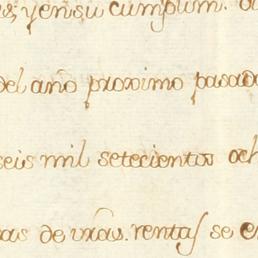 y en su cumplim.
del año proximo pasado
seis mil setecientos och
de vras. rentas se